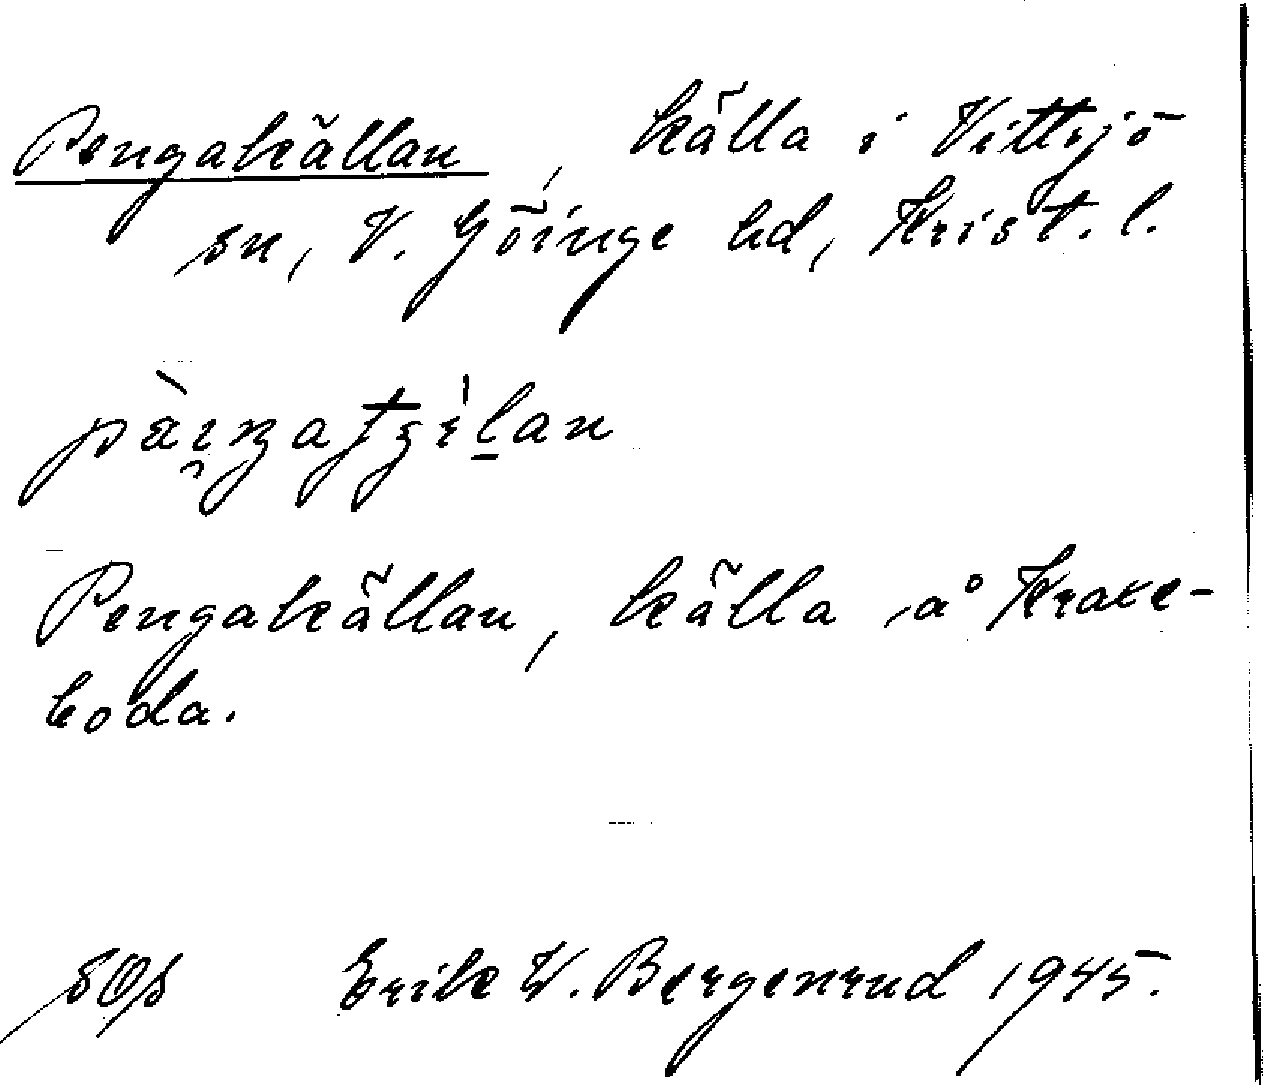 Pengakällan, källa i Vittsjö
sn, V. Göinge hd, Krist. l.
Pengakällan, källa å Krake-
boda.
Erik W. Bergenrud 1945.